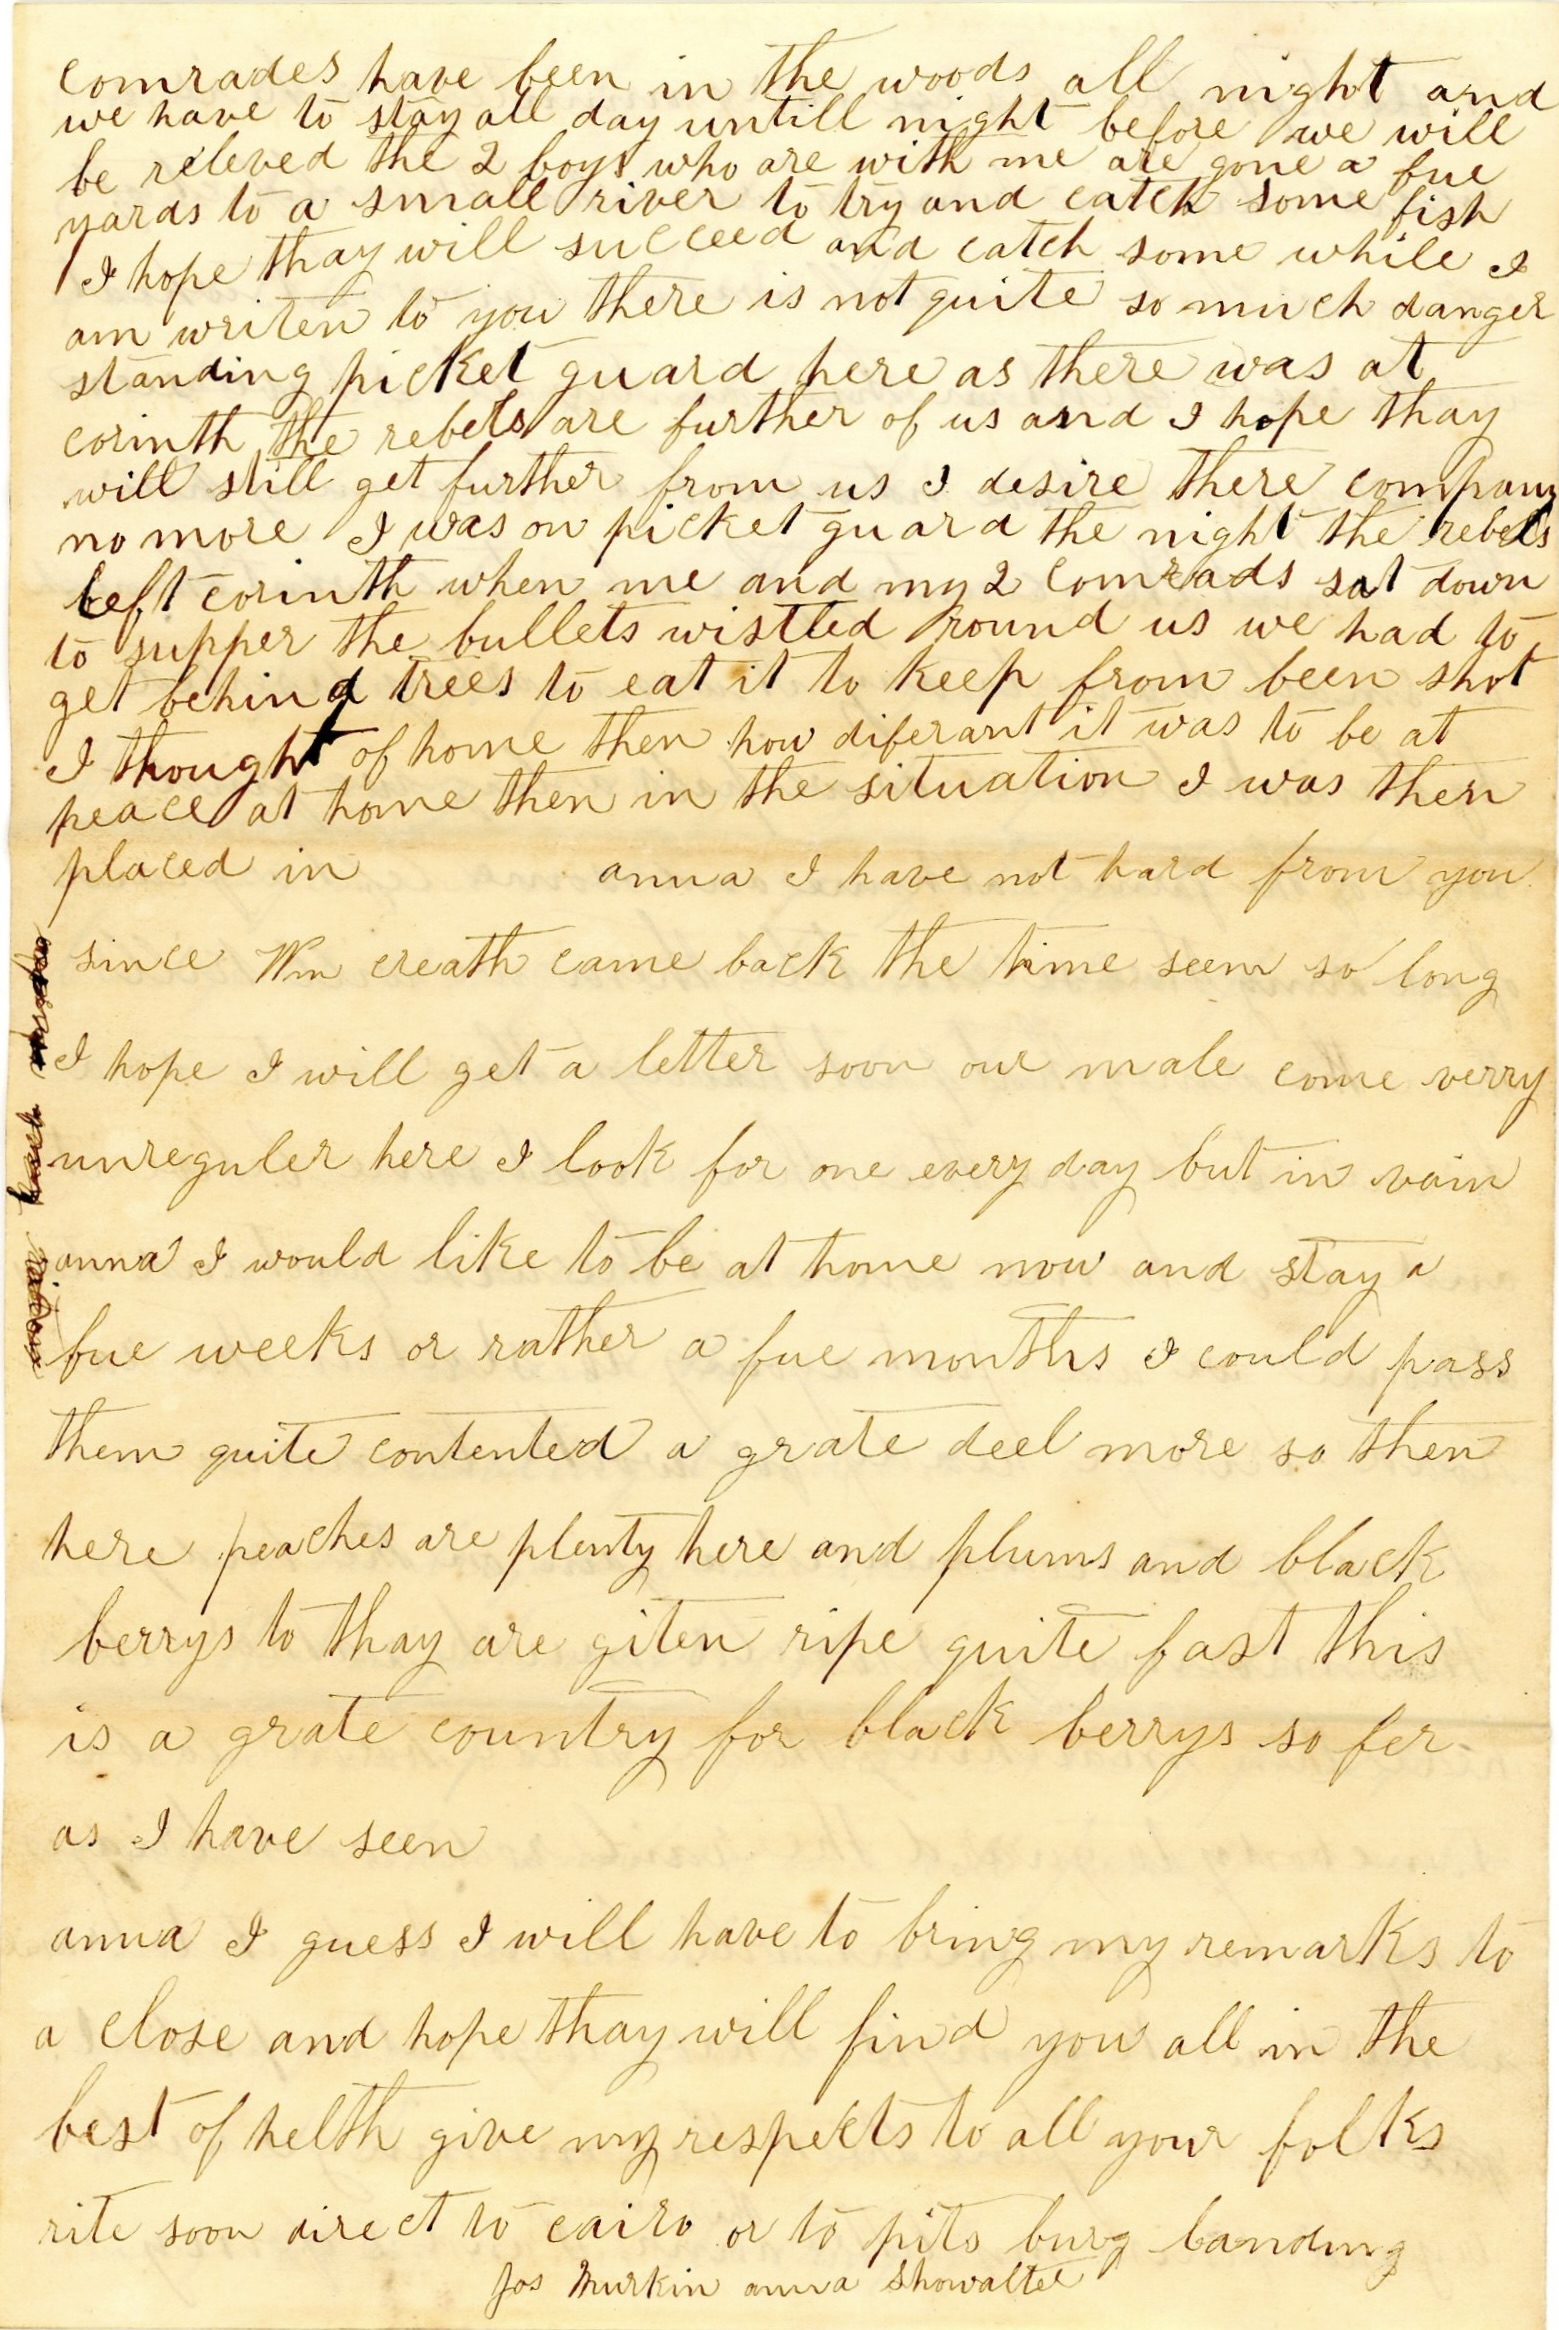 comrades have been in the woods all night and
we have to stay all day untill night before we will
be releved the 2 boys who are with me are gone a fue
yards to a small river to try and catch some fish
I hope thay will succeed and catch some while I
am writen to you there is not quite so much danger
standing picket guard here as there was at
corinth the rebels are further of us and I hope thay
will still get further from us I desire there company
no more I was on picket guard the night the rebels
left corinth when me and my 2 comrads sat down
to supper the bullets wistled round us we had to
get behind trees to eat it to keep from been shot
I thought of home then how diferant it was to be at
peace at home then in the situation I was then
placed in anna I have not hard from you
since Wm creath came back the time seem so long
I hope I will get a letter soon our male come verry
unreguler here I look for one every day but in vain
anna I would like to be at home now and stay a
fue weeks or rather a fue months I could pass
them quite contented a grate deel more so then
here peaches are plenty here and plums and black
berrys to thay are giten ripe quite fast this
is a grate country for black berrys so fer
as I have seen
anna I guess I will have to bring my remarks to
a close and hope thay will find you all in the
best of helth give my respects to all your folks
rite soon direct to cairo or to pits burg landing
Jos Murkin anna Showalter